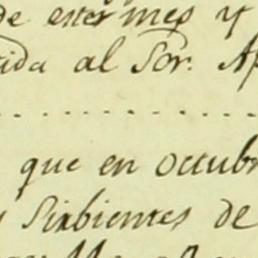 de este mes y
ida al Sor. Ap
que en octub
y Sirbientes de